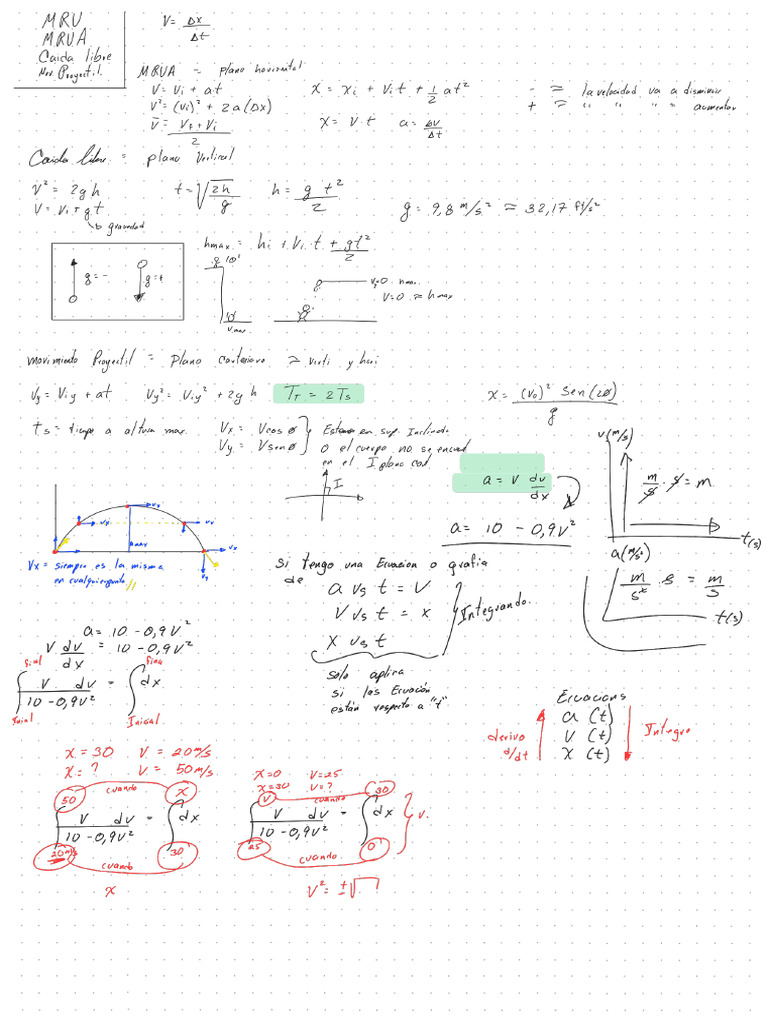 MRU
MRUA
Caida libre
Mov. Proyectil.
V = Δx / Δt
MRUA = plano horizontal
V = Vi + at
V² = (Vi)² + 2a(Δx)
V̄ = Vf + Vi / 2
X = Xi + Vi t + 1/2 at²
X = V · t   a = ΔV / Δt
- = la velocidad va a disminuir
+ = " " " " aumentar
Caida libre = plano vertical
V² = 2gh
V = Vi + gt
gravedad
t = √(2h / g)
h = g t² / 2
g = 9,8 m/s² ≈ 32,17 ft/s²
g = -
g = +
hmax = hi + Vi · t + gt² / 2
Vmax
V=0 hmax
V=0 ≈ hmax
movimiento Proyectil = Plano Cartesiano = verti y hori
Vy = Viy + at   Vy² = Viy² + 2gh   TT = 2Ts
X = (Vo)² Sen(2θ) / g
ts = tiempo a altura max.
Vx = Vcosθ
Vy = Vsenθ
Estamos en sup. Inclinada
o el cuerpo no se encuent
en el I plano cad
I
a = V dv / dx
a = 10 - 0,9V²
V (m/s)
m / s · s = m
t(s)
a (m/s²)
m / s² · s = m / s
t(s)
Vx
Vx
Vx
Vx
Vy
hmax
Vx = siempre es la misma
en cualquier punto //
si tengo una Ecuacion o grafia
de
a vs t = V
V vs t = x
x vs t
Integrando.
solo aplica
si las Ecuación
están respecto a "t"
a = 10 - 0,9V²
V dv / dx = 10 - 0,9V²
final
final
∫ V dv / 10 - 0,9V² = ∫ dx
Inicial
Inicial
Ecuacions
a (t)
V (t)
X (t)
derivo
d/dt
Integro
X = 30   V = 20 m/s
X = ?   V = 50 m/s
50 cuando x
∫ V dv / 10 - 0,9V² = ∫ dx
20 m/s cuando 30
x
X = 0   V = 25
X = 30   V = ?
V cuando 30
∫ V dv / 10 - 0,9V² = ∫ dx
V.
25 cuando 0
V² = ±√